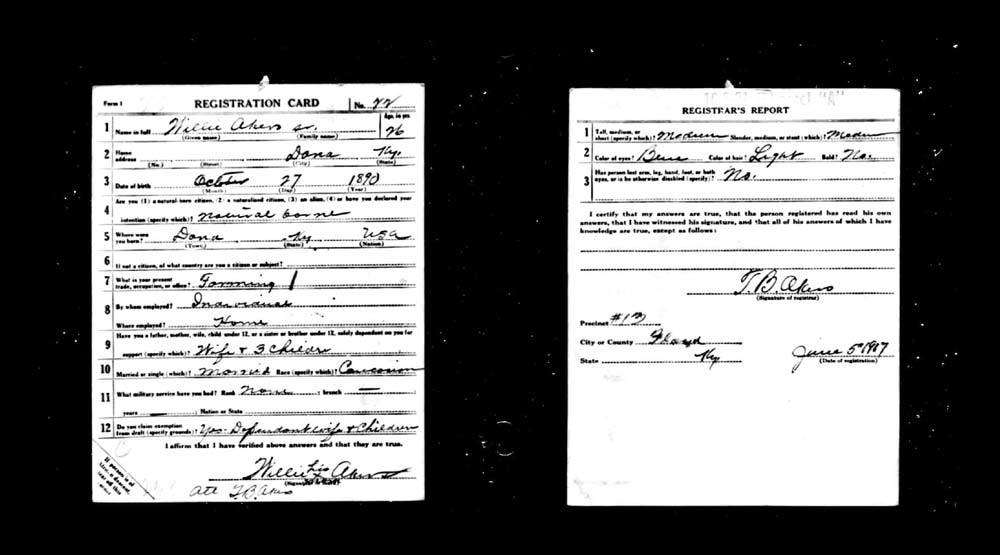 Form 1 REGISTRATION CARD No. 22
1 Name in full Willie Akers sr. Age, in yrs. 26
(Given name) (Family name)
2 Home address Dana Ky.
(No.) (Street) (City) (State)
3 Date of birth October 27 1890
(Month) (Day) (Year)
4 Are you (1) a natural-born citizen, (2) a naturalized citizen, (3) an alien, (4) or have you declared your
intention (specify which)? Natural borne
5 Where were you born? Dana Ky USA
(Town) (State) (Nation)
6 If not a citizen, of what country are you a citizen or subject?
7 What is your present trade, occupation, or office? Farming
8 By whom employed? Individual
Where employed? Home
9 Have you a father, mother, wife, child under 12, or a sister or brother under 12, solely dependent on you for
support (specify which)? Wife & 3 Childr
10 Married or single (which)? Married Race (specify which)? Caucasion
11 What military service have you had? Rank None ; branch —
years ; Nation or State
12 Do you claim exemption from draft (specify grounds)? Yes. Dependant wife & Children
I affirm that I have verified above answers and that they are true.
Willie his Akers
(Signature or mark)
Att T.B. Akers
If person is of
African descent,
tear off this
corner
REGISTRAR'S REPORT
1 Tall, medium, or short (specify which)? Medium Slender, medium, or stout (which)? Medm
2 Color of eyes? Blue Color of hair? Light Bald? No.
3 Has person lost arm, leg, hand, foot, or both
eyes, or is he otherwise disabled (specify)? No.
I certify that my answers are true, that the person registered has read his own
answers, that I have witnessed his signature, and that all of his answers of which I have
knowledge are true, except as follows:
T.B. Akers
(Signature of registrar)
Precinct
City or County Floyd
State Ky June 5th 1917
(Date of registration)